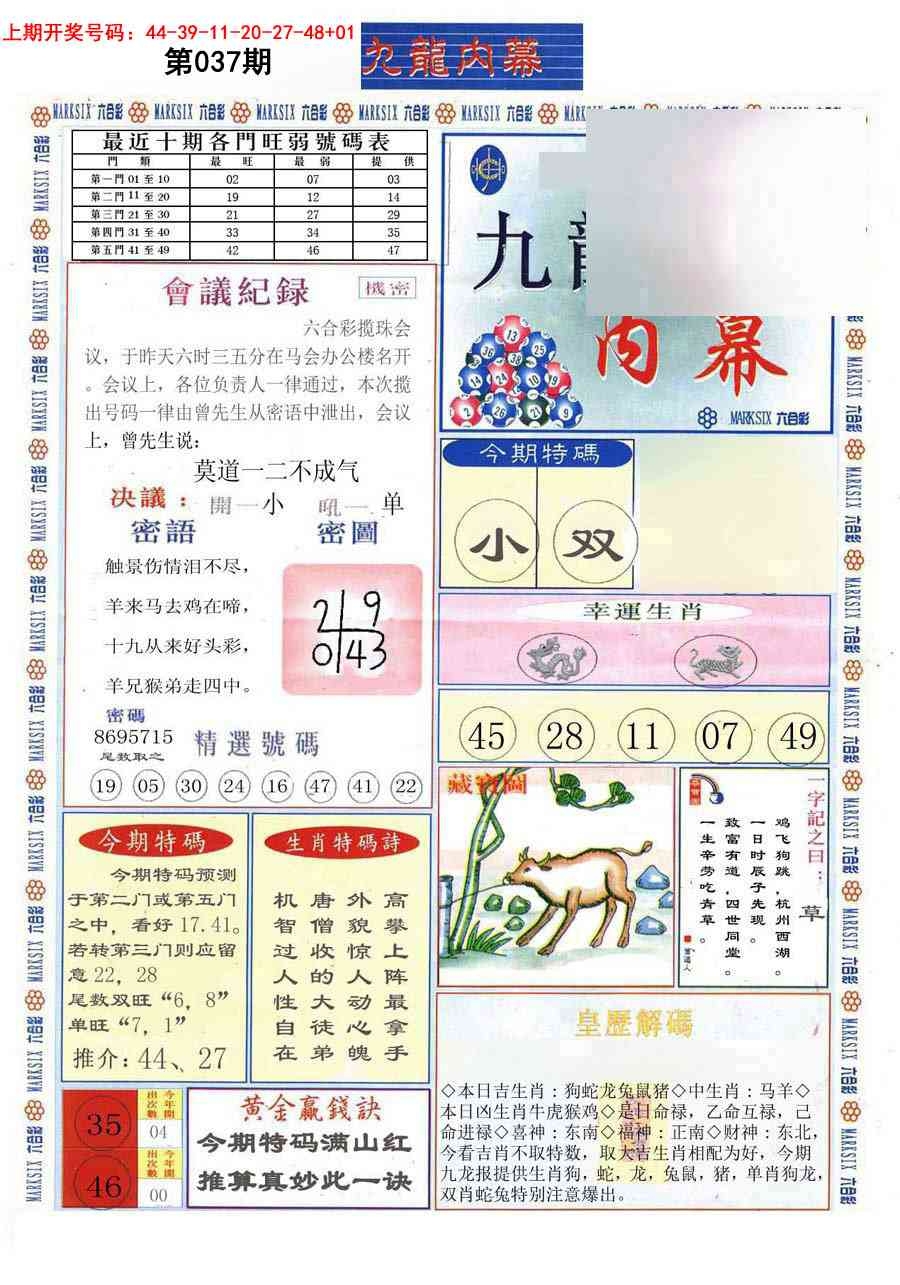 上期开奖号码：44-39-11-20-27-48+01
第037期
九龍内幕
MARKSIX 六合彩
最近十期各門旺弱號碼表
門 類 最 旺 最 弱 提 供
第一門 01 至 10 02 07 03
第二門 11 至 20 19 12 14
第三門 21 至 30 21 27 29
第四門 31 至 40 33 34 35
第五門 41 至 49 42 46 47
會議紀録
機密
六合彩揽珠会
议，于昨天六时三五分在马会办公楼名开
。会议上，各位负责人一律通过，本次揽
出号码一律由曾先生从密语中泄出，会议
上，曾先生说：
莫道一二不成气
决議：開一小 吼一单
密語
触景伤情泪不尽，
羊来马去鸡在啼，
十九从来好头彩，
羊兄猴弟走四中。
密圖
2 9
0 43
密碼
8695715
尾数取之
精選號碼
19 05 30 24 16 47 41 22
九
内幕
13
36 38 25
14 24 10 19
2 26 21 9
MARKSIX 六合彩
今期特碼
小 双
幸運生肖
45 28 11 07 49
藏寶圖
一字記之曰：
草
鸡飞狗跳，杭州西湖。
一日时辰子先现。
致富有道，四世同堂。
一生辛劳吃青草。
今期特碼
今期特码预测
于第二门或第五门
之中，看好 17.41。
若转第三门则应留
意 22，28
尾数双旺“6，8”
单旺“7，1”
推介：44、27
生肖特碼詩
高攀上阵最拿手
外貌惊人动心魄
唐僧收的大徒弟
机智过人性自在
35
今年開出次數
04
46
今年開出次數
00
黄金赢錢訣
今期特码满山红
推算真妙此一诀
皇歷解碼
◇本日吉生肖：狗蛇龙兔鼠猪◇中生肖：马羊◇
本日凶生肖牛虎猴鸡◇是日命禄，乙命互禄，己
命进禄◇喜神：东南◇福神：正南◇财神：东北，
今看吉肖不取特数，取大吉生肖相配为好，今期
九龙报提供生肖狗，蛇，龙，兔鼠，猪，单肖狗龙，
双肖蛇兔特别注意爆出。